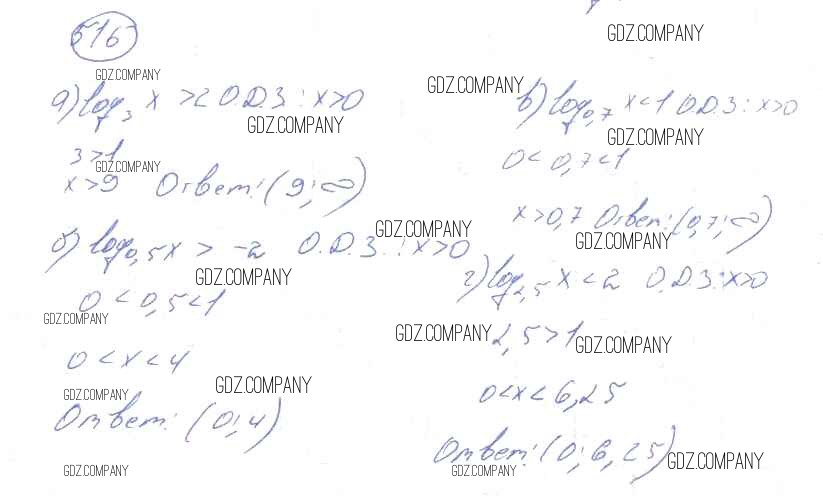 516
GDZ.COMPANY
GDZ.COMPANY
а) log₃ x > 2 О.Д.З : x>0
GDZ.COMPANY
GDZ.COMPANY
3>1
GDZ.COMPANY
x>9 Ответ: (9; ∞)
б) log₀,₅ x > -2 О.Д.З. : x>0
GDZ.COMPANY
0 < 0,5 < 1
GDZ.COMPANY
0 < x < 4
GDZ.COMPANY
GDZ.COMPANY
Ответ: (0; 4)
GDZ.COMPANY
GDZ.COMPANY
в) log₀,₇ x < 1 О.Д.З : x>0
GDZ.COMPANY
0 < 0,7 < 1
x>0,7 Ответ: (0,7; ∞)
GDZ.COMPANY
GDZ.COMPANY
г) log₂,₅ x < 2 О.Д.З : x>0
GDZ.COMPANY
2,5 > 1
GDZ.COMPANY
0<x< 6,25
Ответ: (0; 6,25)
GDZ.COMPANY
GDZ.COMPANY